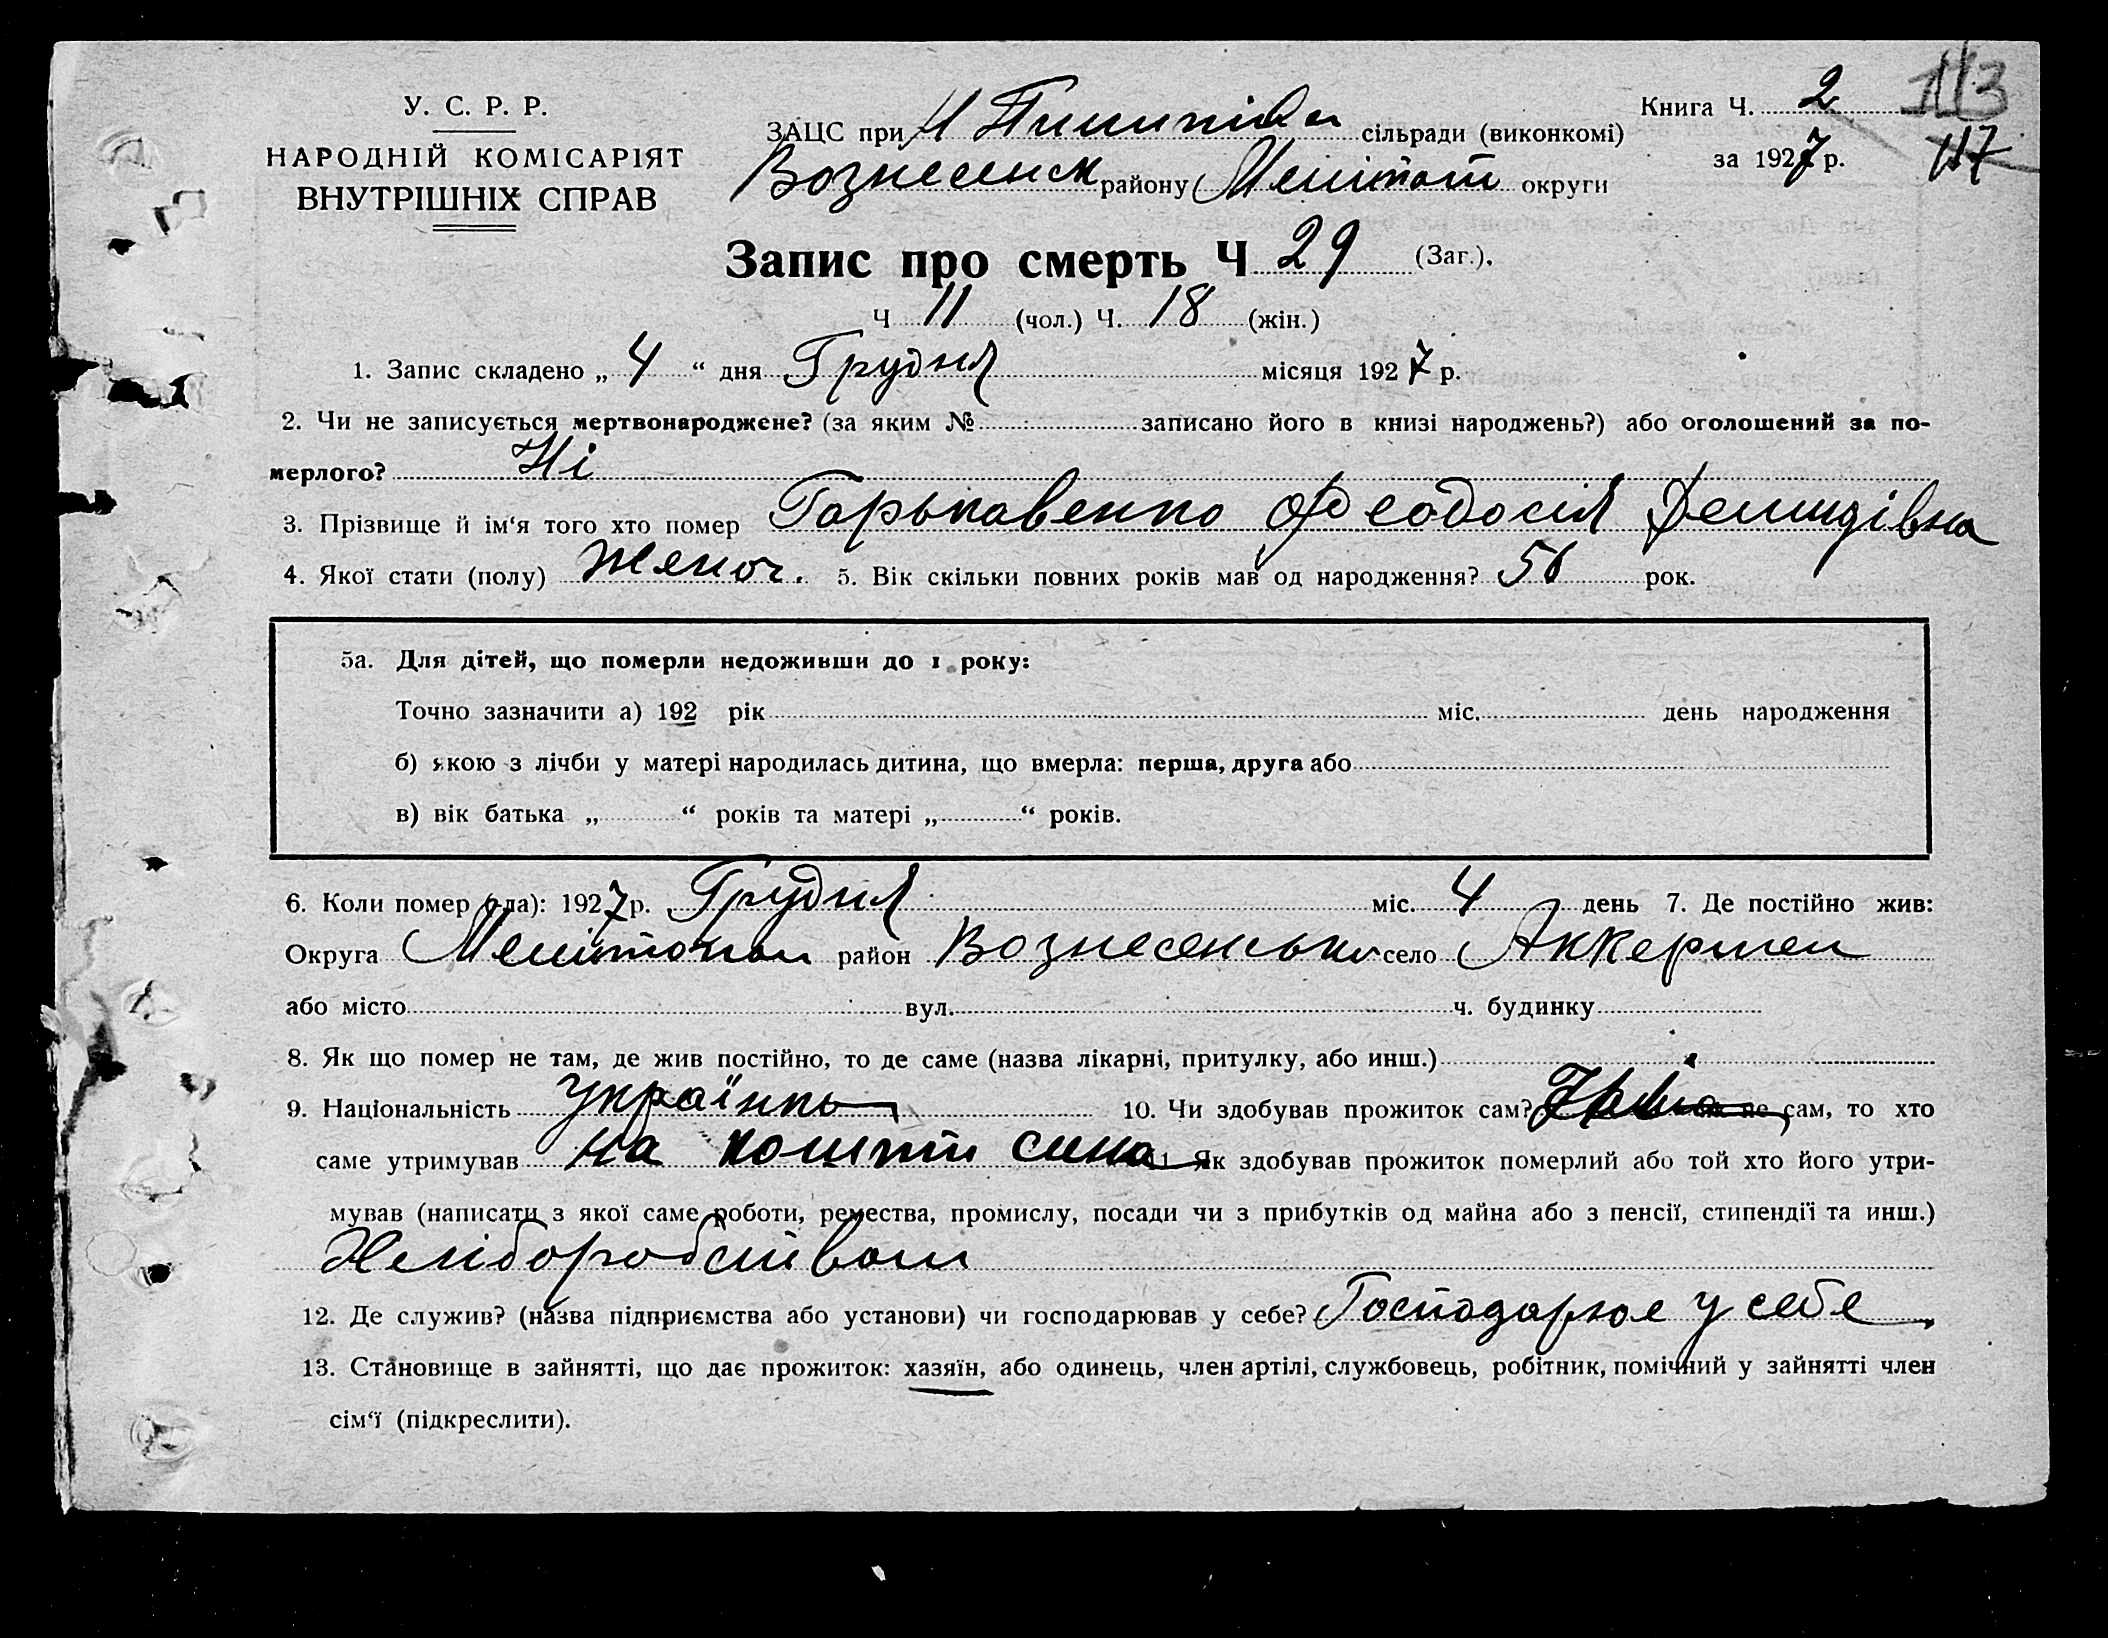 У. С. Р. Р.
НАРОДНІЙ КОМІСАРІЯТ
ВНУТРІШНІХ СПРАВ
ЗАЦС при М Пилипівк сільради (виконкомі)
Вознесенск району Меліт округи
Книга Ч. 2 113
за 1927 р. 117
Запис про смерть Ч 29 (Заг.).
Ч 11 (чол.) Ч. 18 (жін.)
1. Запис складено „ 4 “ дня Грудня місяця 1927 р.
2. Чи не записується мертвонароджене? (за яким № записано його в книзі народжень?) або оголошений за по-
мерлого? Ні
3. Прізвище й ім‘я того хто помер Горькавенко Феодосія Демидівна
4. Якої стати (полу) женоч. 5. Вік скільки повних років мав од народження? 56 рок.
5а. Для дітей, що померли недоживши до 1 року:
Точно зазначити а) 192 рік міс. день народження
б) якою з лічби у матері народилась дитина, що вмерла: перша, друга або
в) вік батька „ “ років та матері „ “ років.
6. Коли помер (-ла): 1927 р. Грудня міс. 4 день 7. Де постійно жив:
Округа район Вознесенськ село Аккермен
або місто вул. ч. будинку
8. Як що помер не там, де жив постійно, то де саме (назва лікарні, притулку, або инш.)
9. Національність Українка 10. Чи здобував прожиток сам? не сам, то хто
саме утримував на кошти сина 11 Як здобував прожиток померлий або той хто його утри-
мував (написати з якої саме роботи, ремества, промислу, посади чи з прибутків од майна або з пенсії, стипендії та инш.)
Хліборобством
12. Де служив? (назва підприємства або установи) чи господарював у себе? Господарює у себе
13. Становище в зайнятті, що дає прожиток: хазяїн, або одинець, член артілі, службовець, робітник, помічний у зайнятті член
сім‘ї (підкреслити).